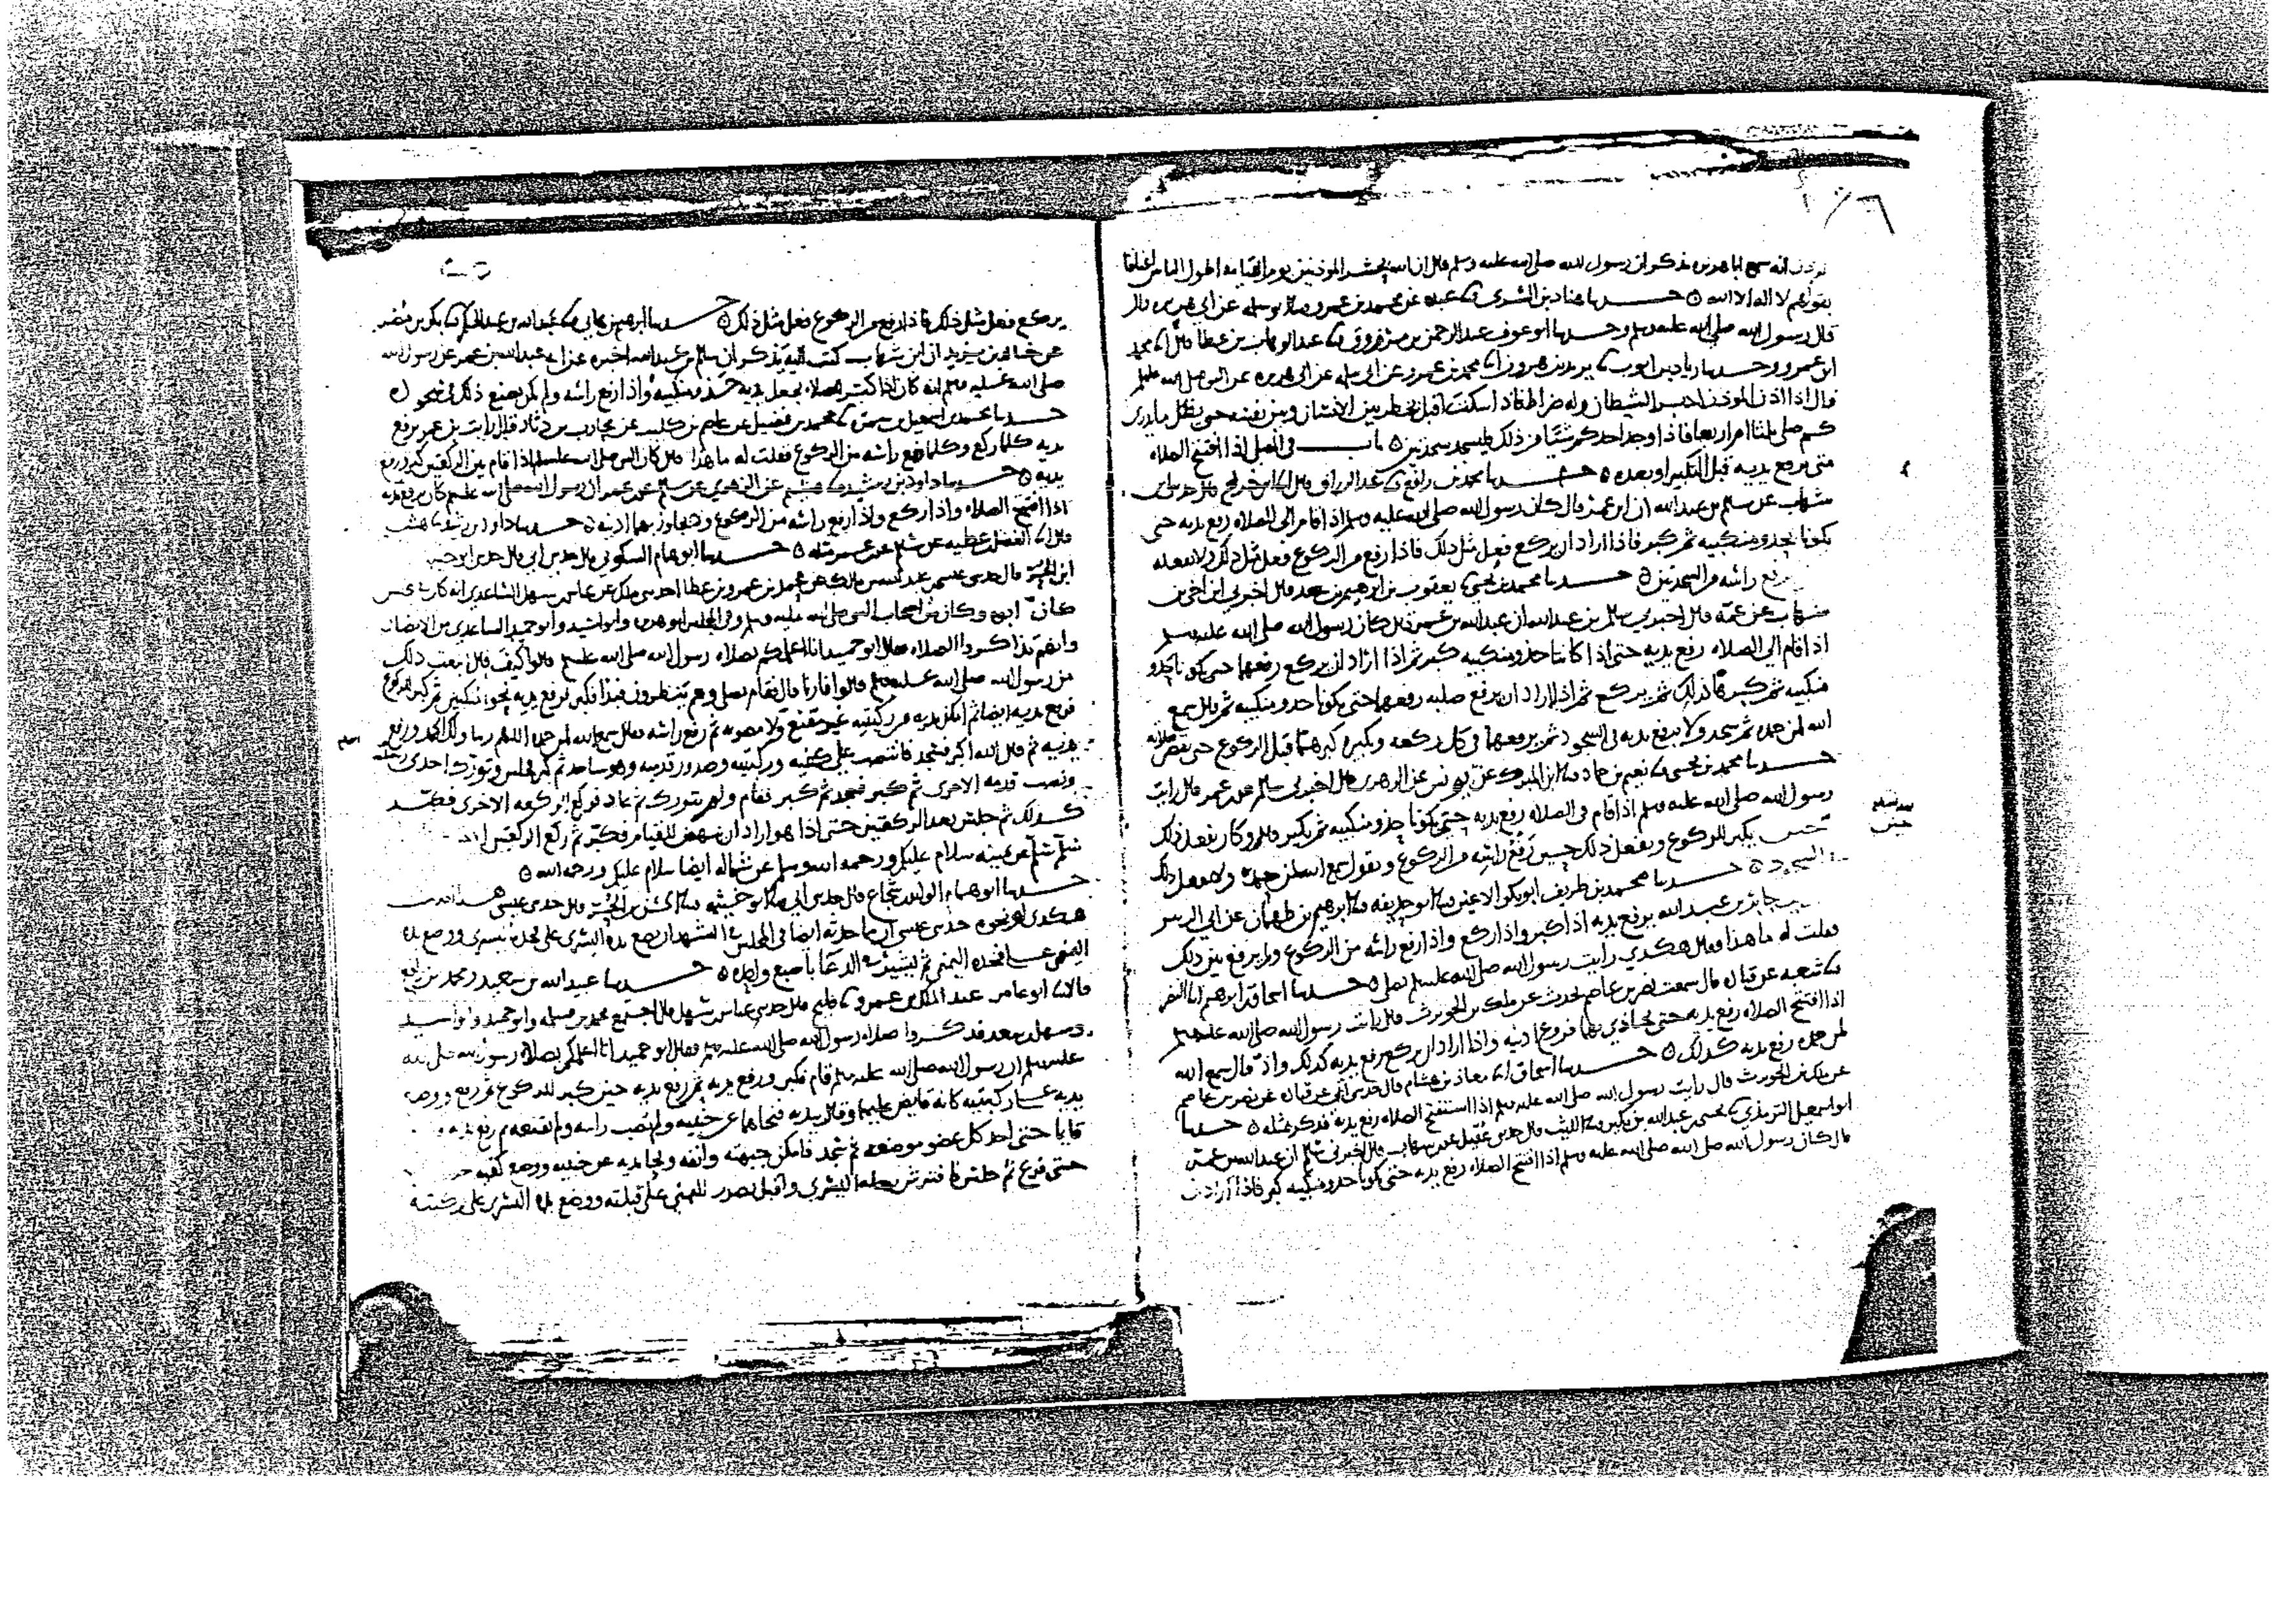 انه سمع ابا هريره يذكر ان رسول الله صلى الله عليه وسلم قال ان الله يحشر الموذنين يوم القيامه اطول الناس اعناقا
بقولهم لا اله الا الله حدثنا هناد بن السري عبده عن محمد بن عمرو عن ابي هريره قال
قال رسول الله صلى الله عليه وسلم وحدثنا ابو عوف عبد الرحمن بن مرزوق عبد الوهاب بن عطا قال محمد
ابن عمرو وحدثنا زياد بن ايوب يزيد بن هرون محمد بن عمرو عن ابي سلمه عن ابي هريره عن النبي صلى الله عليه وسلم
قال اذا اذن الموذن الشيطان وله ضراط فاذا سكت اقبل يخطر بين الانسان وبين نفسه حتى يظل ما يدري
كم صلى ثلثا ام اربعا فاذا وجد احدكم شيا من ذلك فليسجد سجدتين باب في المصلي اذا افتتح الصلاه
متى يرفع يديه قبل التكبير او بعده حدثنا محمد بن رافع عبد الرزاق قال ابن جريج قال حدثني ابن
شهاب عن سلم بن عبد الله ان ابن عمر قال كان رسول الله صلى الله عليه وسلم اذا قام الى الصلاه رفع يديه حتى
يكونا حذو منكبيه ثم كبر فاذا اراد ان يركع فعل مثل ذلك فاذا رفع من الركوع فعل مثل ذلك ولا يفعله
يرفع راسه من السجدتين حدثنا محمد بن يحيى يعقوب بن ابرهيم بن سعد قال اخبرني ابن اخي ابن
شهاب عن عمه قال اخبرني سلم بن عبد الله ان عبد الله بن عمر قال كان رسول الله صلى الله عليه وسلم
اذا قام الى الصلاه رفع يديه حتى اذا كانتا حذو منكبيه كبر ثم اذا اراد ان يركع رفعهما حتى يكونا حذو
منكبيه ثم كبر ثم يركع ثم اذا اراد ان يرفع صلبه رفعهما حتى يكونا حذو منكبيه ثم قال سمع
الله لمن حمده ثم سجد ولا يرفع يديه في السجود ثم يرفعهما في كل ركعه وتكبيره كبرها قبل الركوع حتى تنقضي صلاته
حدثنا محمد بن يحيى نعيم بن حماد ابن المبرك عن يونس عن الزهري قال اخبرني سالم عن ابن عمر قال رايت
رسول الله صلى الله عليه وسلم اذا قام في الصلاه رفع يديه حتى يكونا حذو منكبيه ثم يكبر قال وكان يفعل ذلك
حين يكبر للركوع ويفعل ذلك حين يرفع راسه من الركوع ويقول سمع الله لمن حمده ولا يفعل ذلك
السجود حدثنا محمد بن طريف ابو بكر الاعين ابو حذيفه ابرهيم بن طهمان عن ابي الزبير
جابر بن عبد الله يرفع يديه اذا كبر واذا ركع واذا رفع راسه من الركوع ولم يرفع بين ذلك
فقلت له ما هذا فقال هكذي رايت رسول الله صلى الله عليه وسلم يصلي حدثنا اسحاق بن ابرهيم النضر
شعبه عن قتاده قال سمعت نصر بن عاصم يحدث عن ملك بن الحويرث قال رايت رسول الله صلى الله عليه وسلم
اذا افتتح الصلاه رفع يديه حتى يحاذي بهما فروع اذنيه واذا اراد ان يركع رفع يديه كذلك واذ قال سمع الله
لمن حمده رفع يديه كذلك حدثنا اسحاق معاذ بن هشام قال حدثني ابي عن قتاده عن نصر بن عاصم
عن ملك بن الحويرث قال رايت رسول الله صلى الله عليه وسلم اذا استفتح الصلاه رفع يديه فذكر مثله حدثنا
ابو اسمعيل الترمذي يحيى بن عبد الله بن بكير الليث قال حدثني عقيل عن ابن شهاب قال اخبرني سلم ان عبد الله بن عمر
قال كان رسول الله صلى الله عليه وسلم اذا افتتح الصلاه رفع يديه حتى يكونا حذو منكبيه كبر فاذا اراد ان
يركع فعل مثل ذلك فاذا رفع من الركوع فعل مثل ذلك حدثنا ابرهيم بن هاني عبد الله بن عبد الحكم بكر بن مضر
عن خالد بن يزيد ان ابن شهاب كتب اليه يذكر ان سالم بن عبد الله اخبره عن عبد الله بن عمر عن رسول الله
صلى الله عليه وسلم انه كان اذا كبر للصلاه يجعل يديه حذو منكبيه واذا رفع راسه ولم يكن يصنع ذلك في السجود
حدثنا محمد بن اسمعيل بن سمره محمد بن فضيل عن عاصم بن كليب عن محارب بن دثار قال رايت بن عمر يرفع
يديه كلما ركع وكلما رفع راسه من الركوع فقلت له ما هذا قال كان النبي صلى الله عليه وسلم اذا قام بين الركعتين كبر ورفع
يديه حدثنا داود بن رشيد هشيم عن الزهري عن سالم عن ابن عمر ان رسول الله صلى الله عليه وسلم كان يرفع يديه
اذا افتتح الصلاه واذا ركع واذا رفع راسه من الركوع ولا يجاوز بهما اذنيه حدثنا داود بن رشيد
قال الفضل عطيه عن سلم عن ابن عمر مثله حدثنا ابو همام السكوني قال حدثني ابي قال حدثني ابو خيثمه
ابن الحر قال حدثني عيسى بن عبد الله بن مالك عن محمد بن عمرو بن عطا احد بني ملك عن عباس بن سهل الساعدي انه كان في مجلس
كان ابوه وكان من اصحاب النبي صلى الله عليه وسلم وفي المجلس ابو هريره وابو اسيد وابو حميد الساعدي من الانصار
وانهم تذاكروا الصلاه فقال ابو حميد انا اعلمكم بصلاه رسول الله صلى الله عليه وسلم قالوا كيف قال اتبعت ذلك
من رسول الله صلى الله عليه وسلم قالوا فارنا قال فقام يصلي وهم ينظرون فبدا فكبر فرفع يديه نحو المنكبين ثم كبر للركوع
فرفع يديه ايضا ثم امكن يديه من ركبتيه غير مقنع ولا مصوبه ثم رفع راسه فقال سمع الله لمن حمده اللهم ربنا ولك الحمد ورفع
يديه ثم قال الله اكبر فسجد فانتصب على كفيه وركبتيه وصدور قدميه وهو ساجد ثم كبر فجلس وتورك احدى رجليه
ونصب قدمه الاخرى ثم كبر فسجد ثم كبر فقام ولم يتورك ثم عاد فركع الركعه الاخرى فكبر
كذلك ثم جلس بعد الركعتين حتى اذا هو اراد ان ينهض للقيام فكبر ثم ركع الركعتين
سلم عن يمينه سلام عليكم ورحمه الله وسلم عن شماله ايضا سلام عليكم ورحمه الله
حدثنا ابو همام الوليد بن شجاع قال حدثني ابي ابو خيثمه الحسن بن الحر قال حدثني عيسى
هكذي او نحوه حديث عيسى ان مما حدثه ايضا في الجلوس في التشهد ان يضع يده اليسرى على فخذه اليسرى ووضع يده
اليمنى على فخذه اليمنى ثم يشير في الدعا باصبع واحده حدثنا عبيد الله بن سعيد ومحمد بن رافع
قالا ابو عامر عبد الملك بن عمرو فليح قال حدثني عباس بن سهل قال اجتمع محمد بن مسلمه وابو حميد وابو اسيد
وسهل بن سعد فذكروا صلاه رسول الله صلى الله عليه وسلم فقال ابو حميد انا اعلمكم بصلاه رسول الله صلى الله
عليه وسلم ان رسول الله صلى الله عليه وسلم قام فكبر ورفع يديه ثم رفع يديه حين كبر للركوع ثم ركع ووضع
يديه على ركبتيه كانه قابض عليهما وقال بيديه فنحاهما عن جنبيه ولم يصب راسه ولم يقنعه ثم رفع يديه
قايما حتى اخذ كل عضو موضعه ثم سجد فامكن جبهته وانفه ونحا يديه عن جنبيه ووضع كفيه
حتى فرغ ثم جلس فافترش رجله اليسرى واقبل بصدر اليمنى على قبلته ووضع يده اليسرى على ركبته